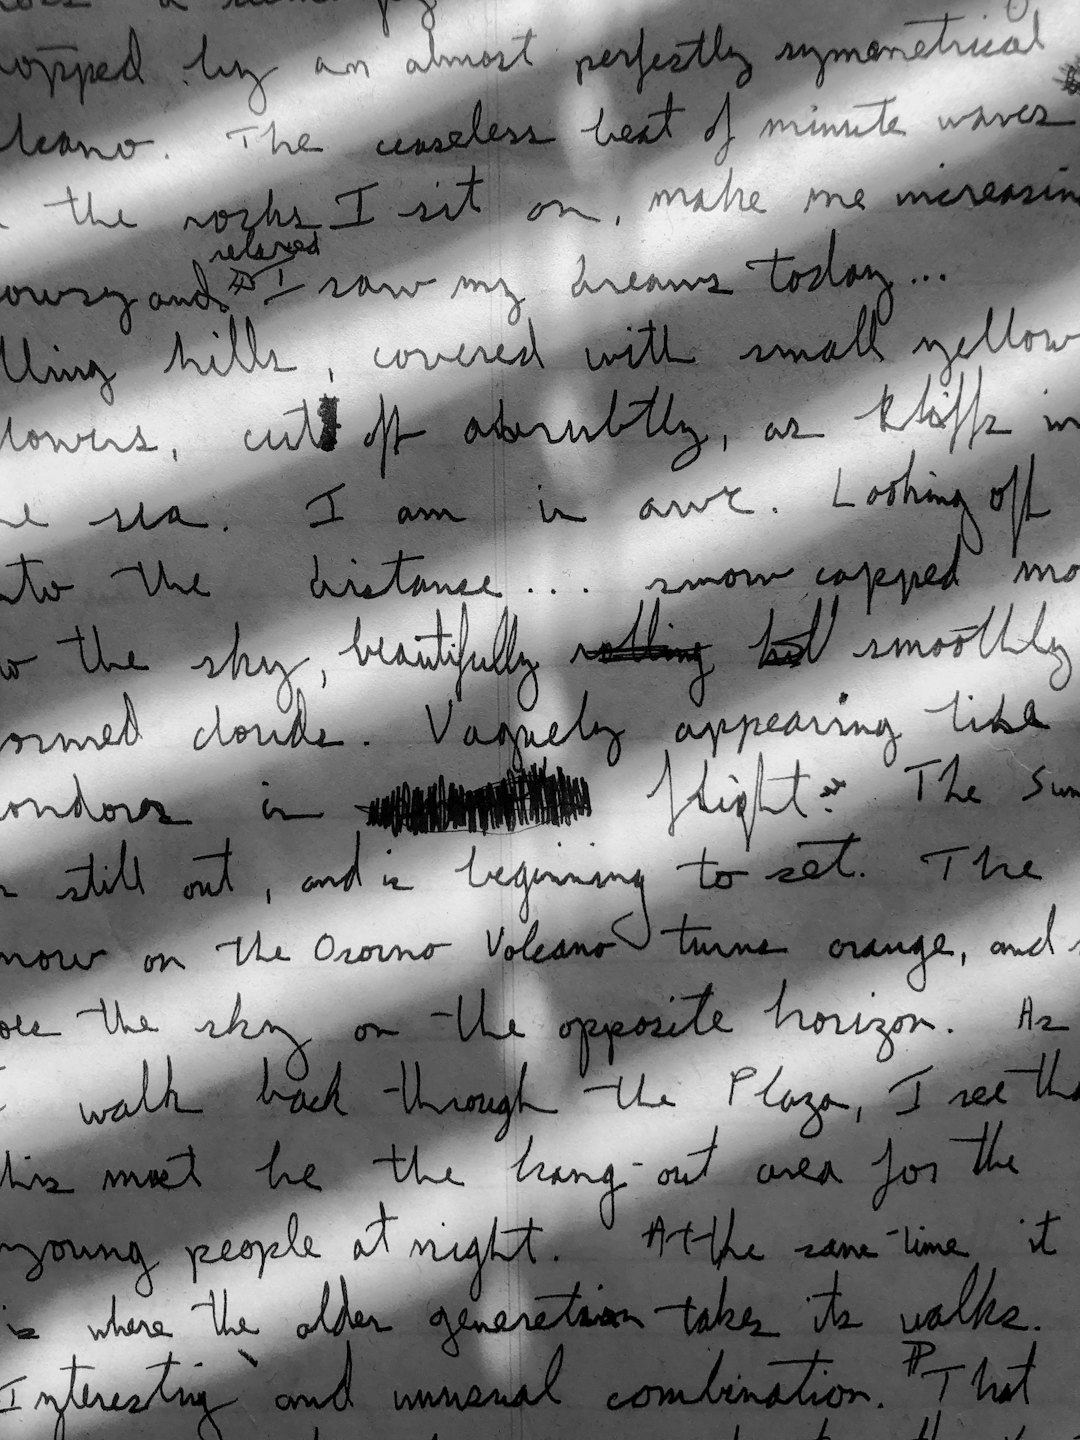 topped by an almost perfectly symmetrical
lcano. The ceaseless beat of minute waves
the rocks I sit on, make me increasin
relaxed
owsy and I saw my dreams today...
lling hills, covered with small yellow
lowers, cut off abrubtly, as kliffs in
e sea. I am in awe. Looking off
nto the distance... snow capped mo
w the sky, beautifully rolling smoothly
ormed clouds. Vaguely appearing like
condors in flight. The Sun
still out, and is beginning to set. The
now on the Osorno Volcano turns orange, and
oes the sky on the opposite horizon. As
walk back through the Plaza, I see tha
his must be the hang-out area for the
young people at night. At the same-time it
is where the older generation takes its walks.
Interesting and unusual combination. P That